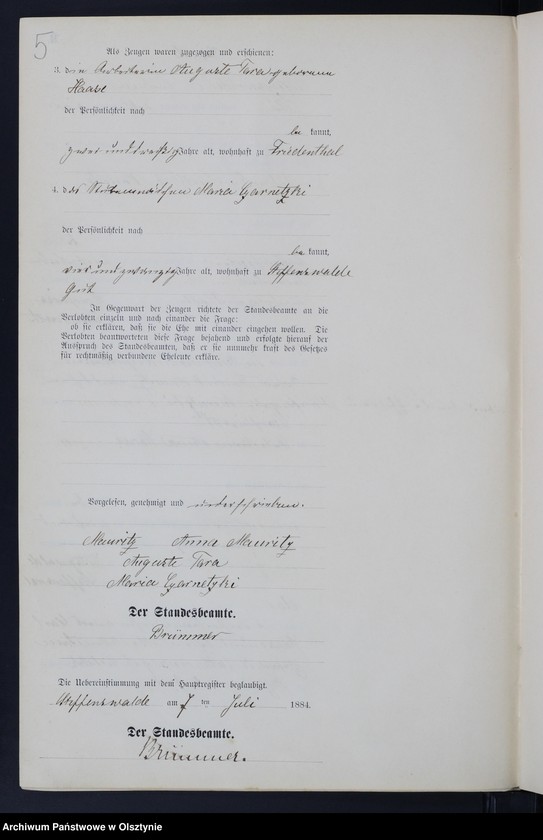 5
Als Zeugen waren zugezogen und erschienen:
3. die Arbeiterin Auguste Tara geborene
Haase
der Persönlichkeit nach
be kannt,
zwei und dreißig Jahre alt, wohnhaft zu Friedenthal
4. das Stubenmädchen Maria Czarnetzki
der Persönlichkeit nach
be kannt,
vier und zwanzig Jahre alt, wohnhaft zu Steffenswalde
Gut
In Gegenwart der Zeugen richtete der Standesbeamte an die
Verlobten einzeln und nach einander die Frage:
ob sie erklären, daß sie die Ehe mit einander eingehen wollen. Die
Verlobten beantworteten diese Frage bejahend und erfolgte hierauf der
Ausspruch des Standesbeamten, daß er sie nunmehr kraft des Gesetzes
für rechtmäßig verbundene Eheleute erkläre.
Vorgelesen, genehmigt und unterschrieben.
Mauritz Anna Mauritz
Auguste Tara
Maria Czarnetzki
Der Standesbeamte.
Brümmer
Die Uebereinstimmung mit dem Hauptregister beglaubigt.
Steffenswalde am 7 ten Juli 1884
Der Standesbeamte.
Brümmer.
Archiwum Państwowe w Olsztynie